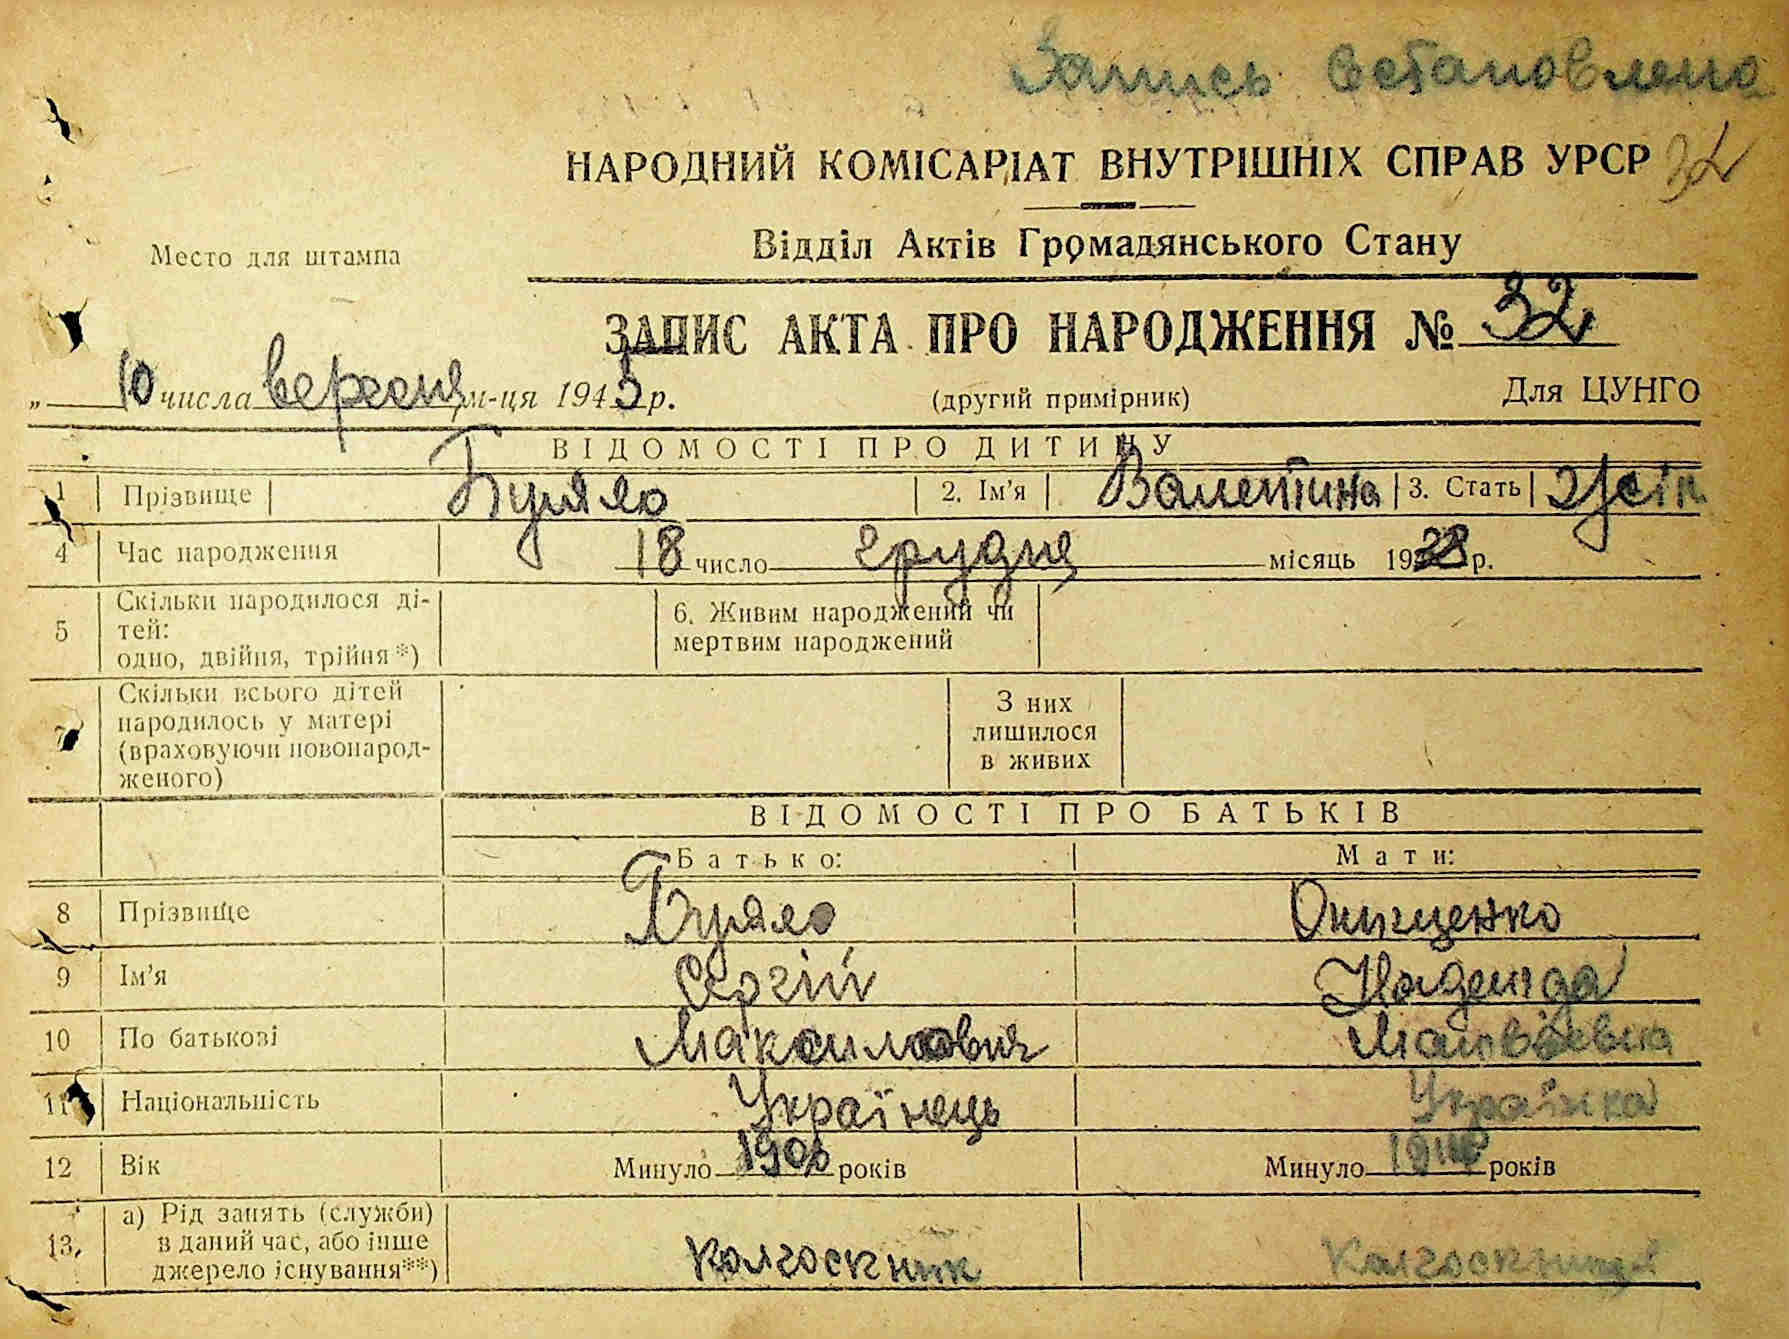 Запись встановлена
НАРОДНИЙ КОМІСАРІАТ ВНУТРІШНІХ СПРАВ УРСР 32
Место для штампа
Відділ Актів Громадянського Стану
ЗАПИС АКТА ПРО НАРОДЖЕННЯ № 32
„ 10 числа вересня м-ця 1945 р. (другий примірник) Для ЦУНГО
ВІДОМОСТІ ПРО ДИТИНУ
1 Прізвище Буряло 2. Ім'я Валентина 3. Стать жін
4 Час народження 18 число грудня місяць 1938 р.
5 Скільки народилося ді-
тей:
одно, двійня, трійня*)
6. Живим народжений чи
мертвим народжений
7 Скільки всього дітей
народилось у матері
(враховуючи новонарод-
женого)
З них
лишилося
в живих
ВІДОМОСТІ ПРО БАТЬКІВ
Батько: Мати:
8 Прізвище Буряло Онищенко
9 Ім'я Сергій Надежда
10 По батькові Максимович
11 Національність Українець Українка
12 Вік Минуло років Минуло років
13. а) Рід занять (служби)
в даний час, або інше
джерело існування**)
колгоспник колгоспниця